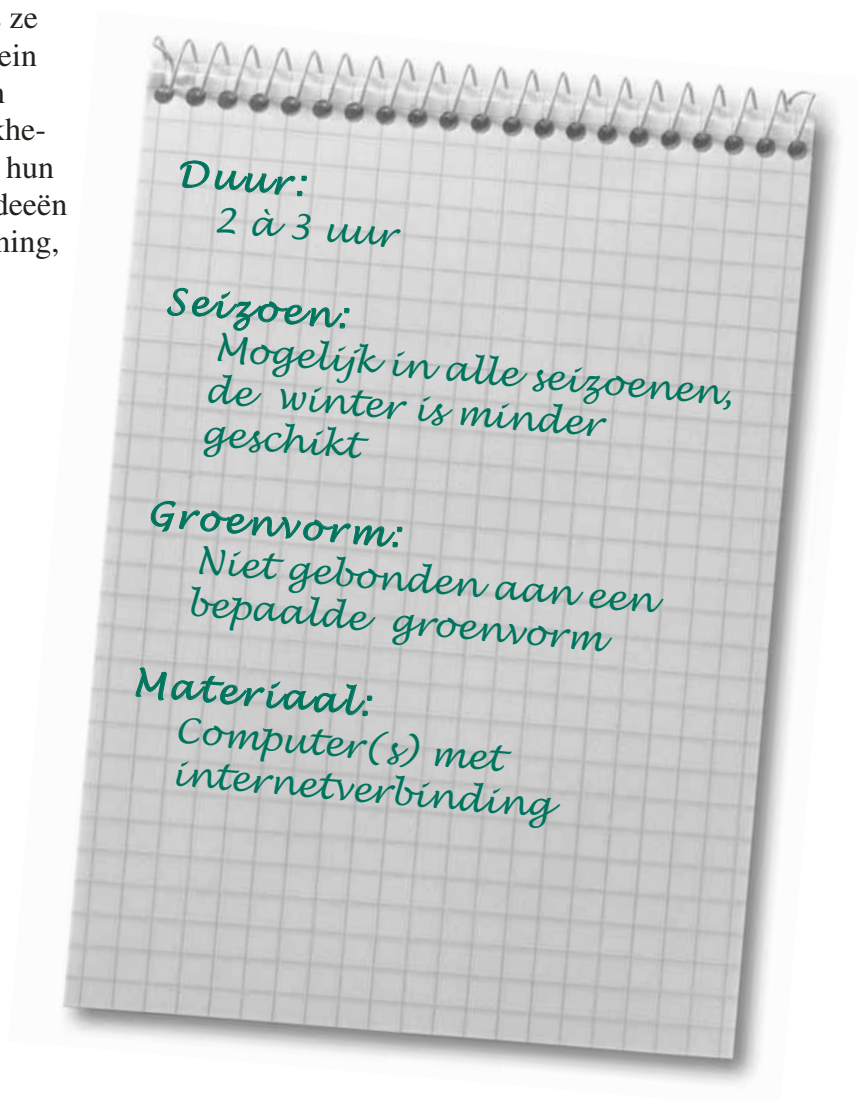 ze
hun
deeën
Duur:
2 à 3 uur
Seizoen:
Mogelijk in alle seizoenen,
de winter is minder
geschikt
Groenvorm:
Niet gebonden aan een
bepaalde groenvorm
Materiaal:
Computer(s) met
internetverbinding